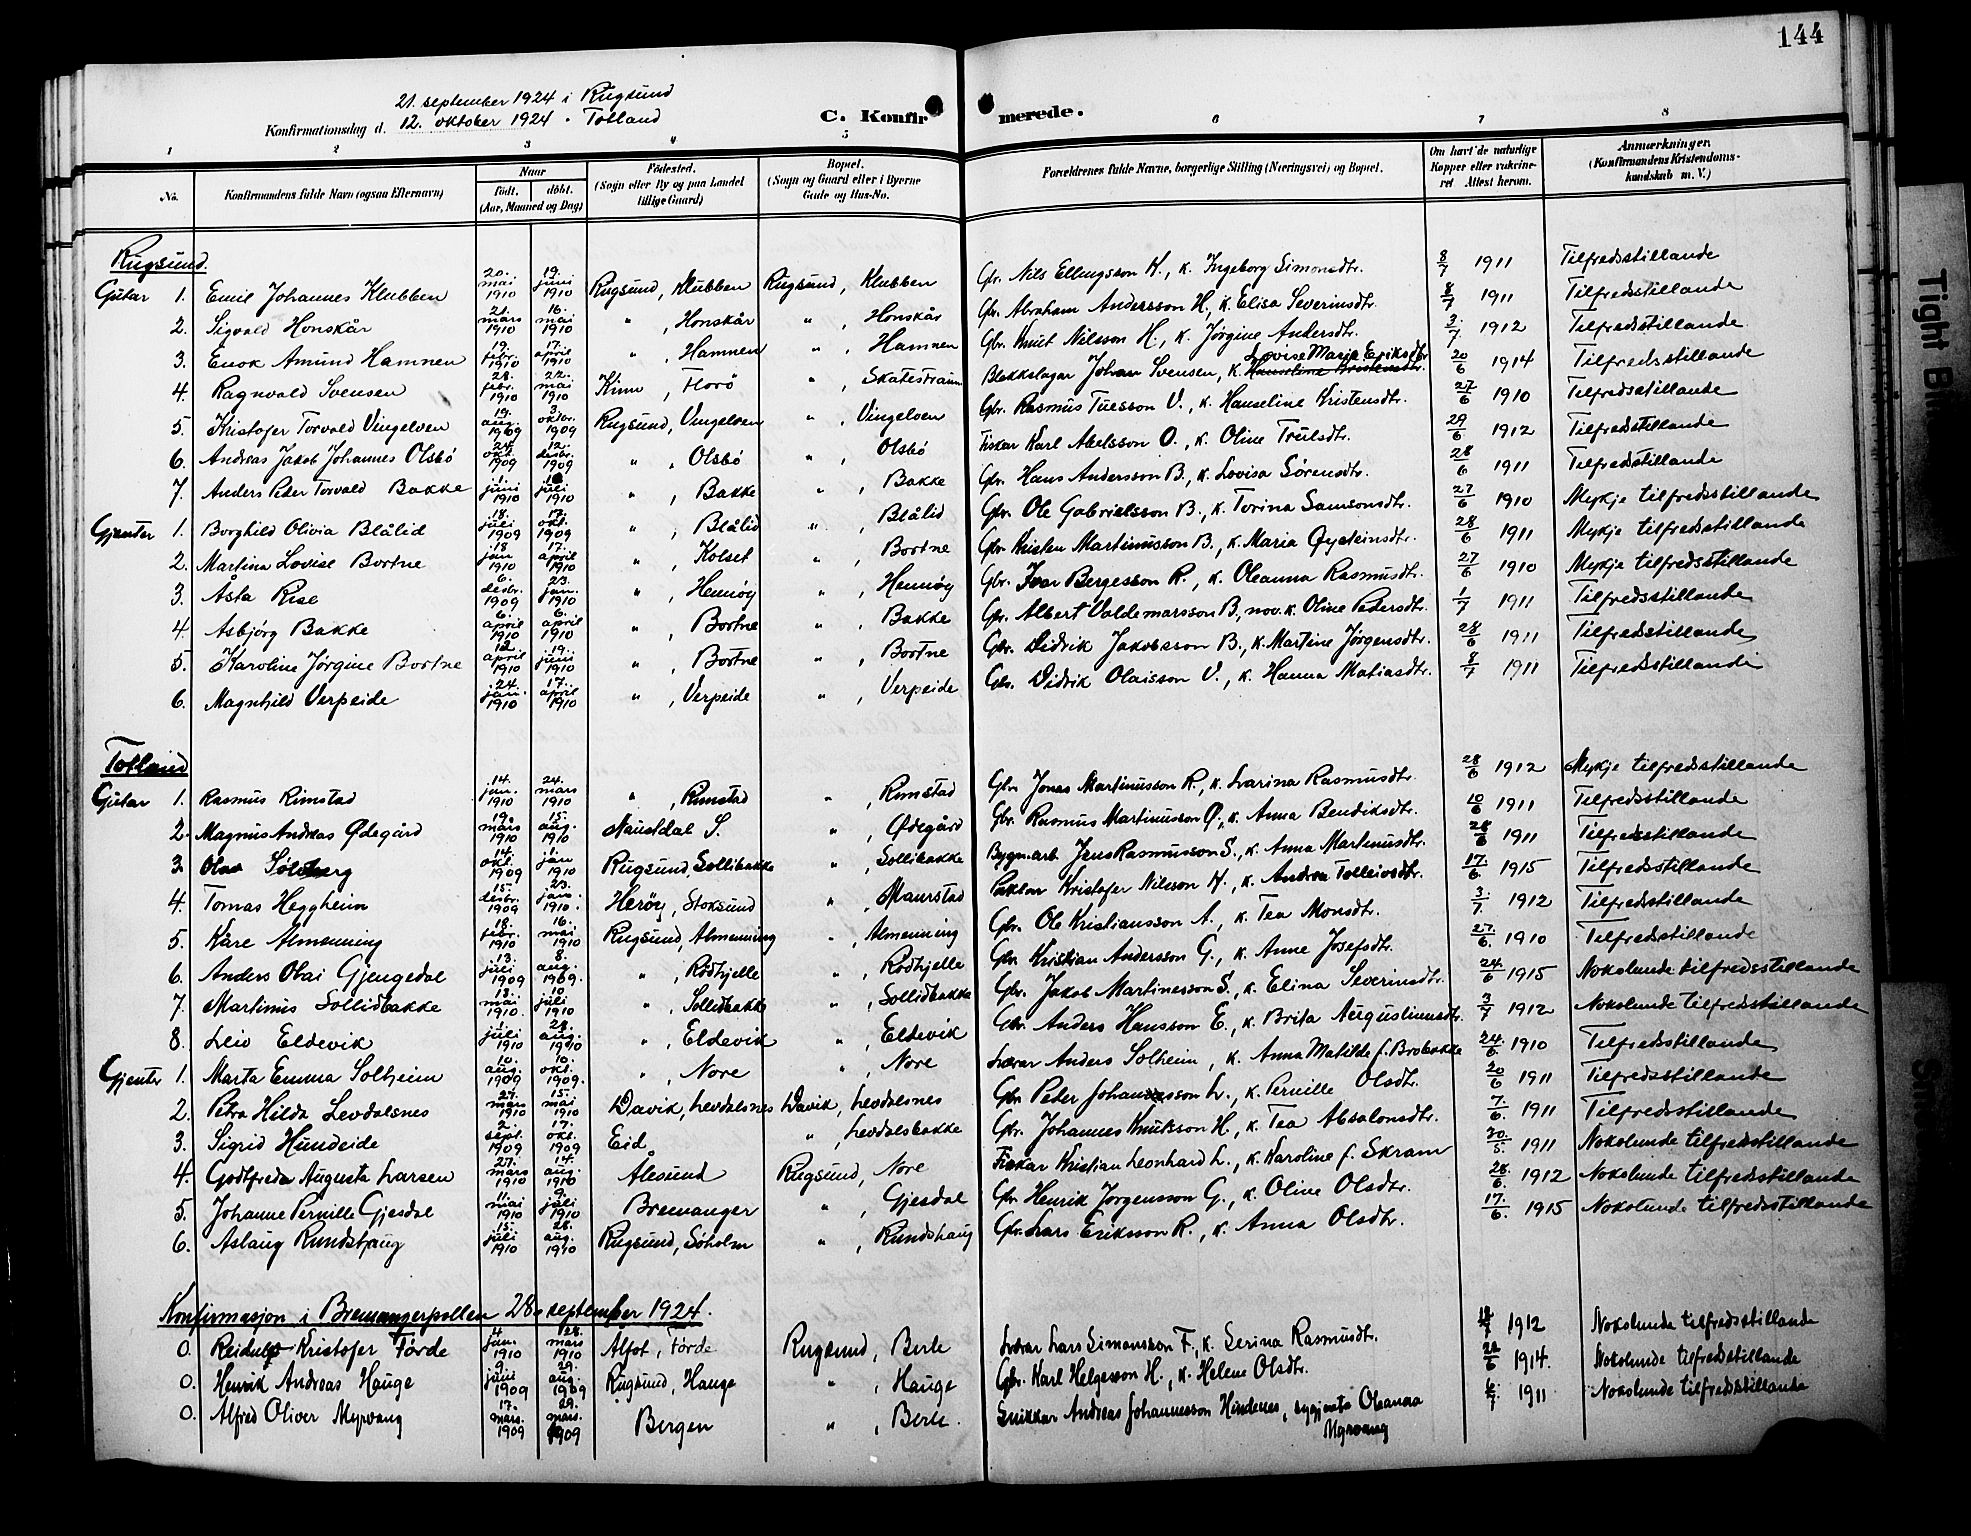 144
21. september 1924 i Rugsund
Konfirmationsdag d. 12. oktober 1924 " Totland
C. Konfirmerede.
1 2 3 4 5 6 7 8
No. Konfirmandens fulde Navn (ogsaa Efternavn) Naar født, døbt. (Aar, Maaned og Dag) Fødested. (Sogn eller By og paa Landet tillige Gaard) Bopæl. (Sogn og Gaard eller i Byerne Gade og Hus-No. Forældrenes fulde Navne, borgerlige Stilling (Næringsvei) og Bopæl. Om havt de naturlige Kopper eller vakcineret Attest herom. Anmærkninger. (Konfirmandens Kristendomskundskab m. V.)
Rugsund.
Gutar 1. Emil Johannes Klubben 20. mai 1910 19. juni 1910 Rugsund, Klubben Rugsund, Klubben Gbr. Nils Ellingsson K., k. Ingeborg Simonsdtr. 8/7 1911 Tilfredsstillande
2. Sigvald Honskår 21. mars 1910 16. mai 1910 " , Honskår " , Honskår Gbr. Abraham Andersson H., k. Elisa Severinsdtr. 8/7 1911 Tilfredsstillande
3. Enok Amund Hamnen 19. febr. 1910 17. april 1910 " , Hamnen " , Hamnen Gbr. Knut Nilsson H., k. Jørgine Andersdtr. 3/7 1912 Tilfredsstillande
4. Ragnvald Svensen 28. febr. 1910 22. mai 1910 Kinn, Florö " , Skatestraum Blekkslagar Johan Svensen, k. Lovise Marie Eriksdtr. 20/6 1914 Tilfredsstillande
5. Kristofer Torvald Vingelven 19. aug. 1909 3. oktbr. 1909 Rugsund, Vingelven " , Vingelven Gbr. Rasmus Tuesson V., k. Hanseline Kristensdtr. 27/6 1910 Tilfredsstillande
6. Andreas Jakob Johannes Olsbö 24. okt. 1909 12. desbr. 1909 " , Olsbö " , Olsbö Fiskar Karl Abelsson O., k. Oline Trulsdtr. 29/6 1912 Tilfredsstillande
7. Anders Peder Torvald Bakke juni 1910 juli 1910 " , Bakke " , Bakke Gbr. Hans Andersson B., k. Lovisa Sørensdtr. 28/6 1911 Tilfredsstillande
Gjenter 1. Borghild Olivia Blålid 18. juli 1909 17. okt. 1909 " , Blålid " , Blålid Gbr. Ole Gabrielsson B., k. Torina Samsonsdtr. 27/6 1910 Mykje tilfredsstillande
2. Martina Lovise Bortne 18. jan 1910 17. april 1910 " , Kolset " , Bortne Gbr. Kristen Martinusson B., k. Maria Øysteinsdtr. 28/6 1911 Mykje tilfredsstillande
3. Åsta Rise 6. desbr. 1909 23. jan. 1910 " , Hennöy " , Hennöy Gbr. Ivar Bergesson R., k. Oleanna Rasmusdtr. 27/6 1910 Mykje tilfredsstillande
4. Asbjörg Bakke 6. april 1910 6. april 1910 " , Bortne " , Bakke Gbr. Albert Valdemarsson B., nov. k. Oline Pedersdtr. 1/7 1911 Tilfredsstillande
5. Karoline Jörgine Bortne 12. april 1910 19. juni 1910 " , Bortne " , Bortne Gbr. Didrik Jakobsson B., k. Martine Jørgensdtr. 28/6 1911 Tilfredsstillande
6. Magnhild Verpeide 24. jan. 1910 17. april 1910 " , Verpeide " , Verpeide Gbr. Didrik Olaisson V., k. Hanna Matiasdtr. 8/7 1911 Tilfredsstillande
Totland
Gutar 1. Rasmus Rimstad 14. jan. 1910 24. mars 1910 " , Rimstad " , Rimstad Gbr. Jonas Martinusson R., k. Larina Rasmusdtr. 28/6 1912 Mykje tilfredsstillande
2. Magnus Andreas Ødegård 19. mars 1910 15. aug. 1910 Naustdal S. " , Ødegård Gbr. Rasmus Martinusson Ø., k. Anna Bendiksdtr. 10/6 1911 Tilfredsstillande
3. 14. okt. 1909 1. jan 1910 Rugsund, Sollibakke " , Sollibakke Bygn.arb. Jens Rasmusson S., k. Anna Martinusdtr. 28/6 1911 Tilfredsstillande
4. Tomas Heggheim 15. desbr. 1909 23. jan. 1910. Heröy, Stoksund " , Maurstad Kristofer Nilsson H., k. Andrea Tolleivsdtr. 17/6 1915 Tilfredsstillande
5. Kåre Almenning 18. febr. 1910 16. mai 1910 Rugsund, Almenning " , Almenning Gbr. Ole Kristiansson A., k. Tea Monsdtr. 3/7 1912 Tilfredsstillande
6. Anders Olai Gjengedal 13. juli 1909 8. aug. 1909. " , Rödhjelle " , Rödhjelle Gbr. Kristian Andersson G., k. Anne Josefsdtr. 27/6 1910 Tilfredsstillande
7. Martinus Sollidbakke 13. mai 1910. 10. juli 1910 " , Sollidbakke " , Sollidbakke Gbr. Jakob Martinesson S., k. Elina Severinsdtr. 24/6 1915 Nokolunde tilfredsstillande
8. Leiv Eldevik juli 1910 28. aug. 1910 " , Eldevik " , Eldevik Gbr. Anders Hansson E., k. Brita Augustinusdtr. 3/7 1912 Nokolunde tilfredsstillande
Gjenter 1. Marta Emma Solheim 10. aug. 1909 10. okt. 1909. " , Nore " , Nore Lærar Anders Solheim, k. Anna Matilde f. Brobakke 24/6. 1910 Tilfredsstillande
2. Petra Hilda Levdalsnes 27. mars 1910 15. mai 1910 Davik, Levdalsnes Davik, Levdalsnes Gbr. Peder Johannesson L., k. Pernille Olsdtr. 20/6 1911 Tilfredsstillande
3. Sigrid Hundeide 2. sept. 1909 17. okt. 1909 Eid " , Levdalsbakke Gbr. Johannes Knutsson H., k. Tea Absalonsdtr. 7/6. 1911 Tilfredsstillande
4. Godtfreda Augusta Larsen 27. mars 1910 14. aug. 1910 Ålesund Rugsund, Nore Fiskar Kristian Leonhard L., k. Karoline f. Skram 30/5. 1911 Nokolunde tilfredsstillande
5. Johanne Pernille Gjesdal 11. mai 1910 9. juli 1910 Bremanger " , Gjesdal Gbr. Henrik Jørgensson G., k. Oline Olsdtr. 28/6. 1912 Nokolunde tilfredsstillande
6. Aslaug Rundshaug 15. juli 1910 28. aug. 1910 Rugsund, Søholm " , Rundshaug Gbr. Lars Eriksson R., k. Anna Olsdtr. 17/6. 1915 Nokolunde tilfredsstillande
Konfirmasjon i Bremangerpollen 28. september 1924.
0. Reidulf Kristofer Förde 4. jan. 1910 28. mars 1910 Alfot, Förde Rugsund, Berle Lærar Lars Simonsson F., k. Serina Rasmusdtr. 1912 Nokolunde tilfredsstillande
0. Henrik Andreas Hauge 9. juni 1909 29. aug. 1909 Rugsund, Hauge " , Hauge Gbr. Karl Helgesson H., k. Helene Olsdtr. 22/6 1914. Nokolunde tilfredsstillande
0. Alfred Oliver Myrvang 17. mars. 1909 29. mars. 1909 Bergen " , Berle. Snikkar Andreas Johannesson Hindenes, sygjenta Oleanna Myrvang 6/7 1911 Nokolunde tilfredsstillande
Tight Bi